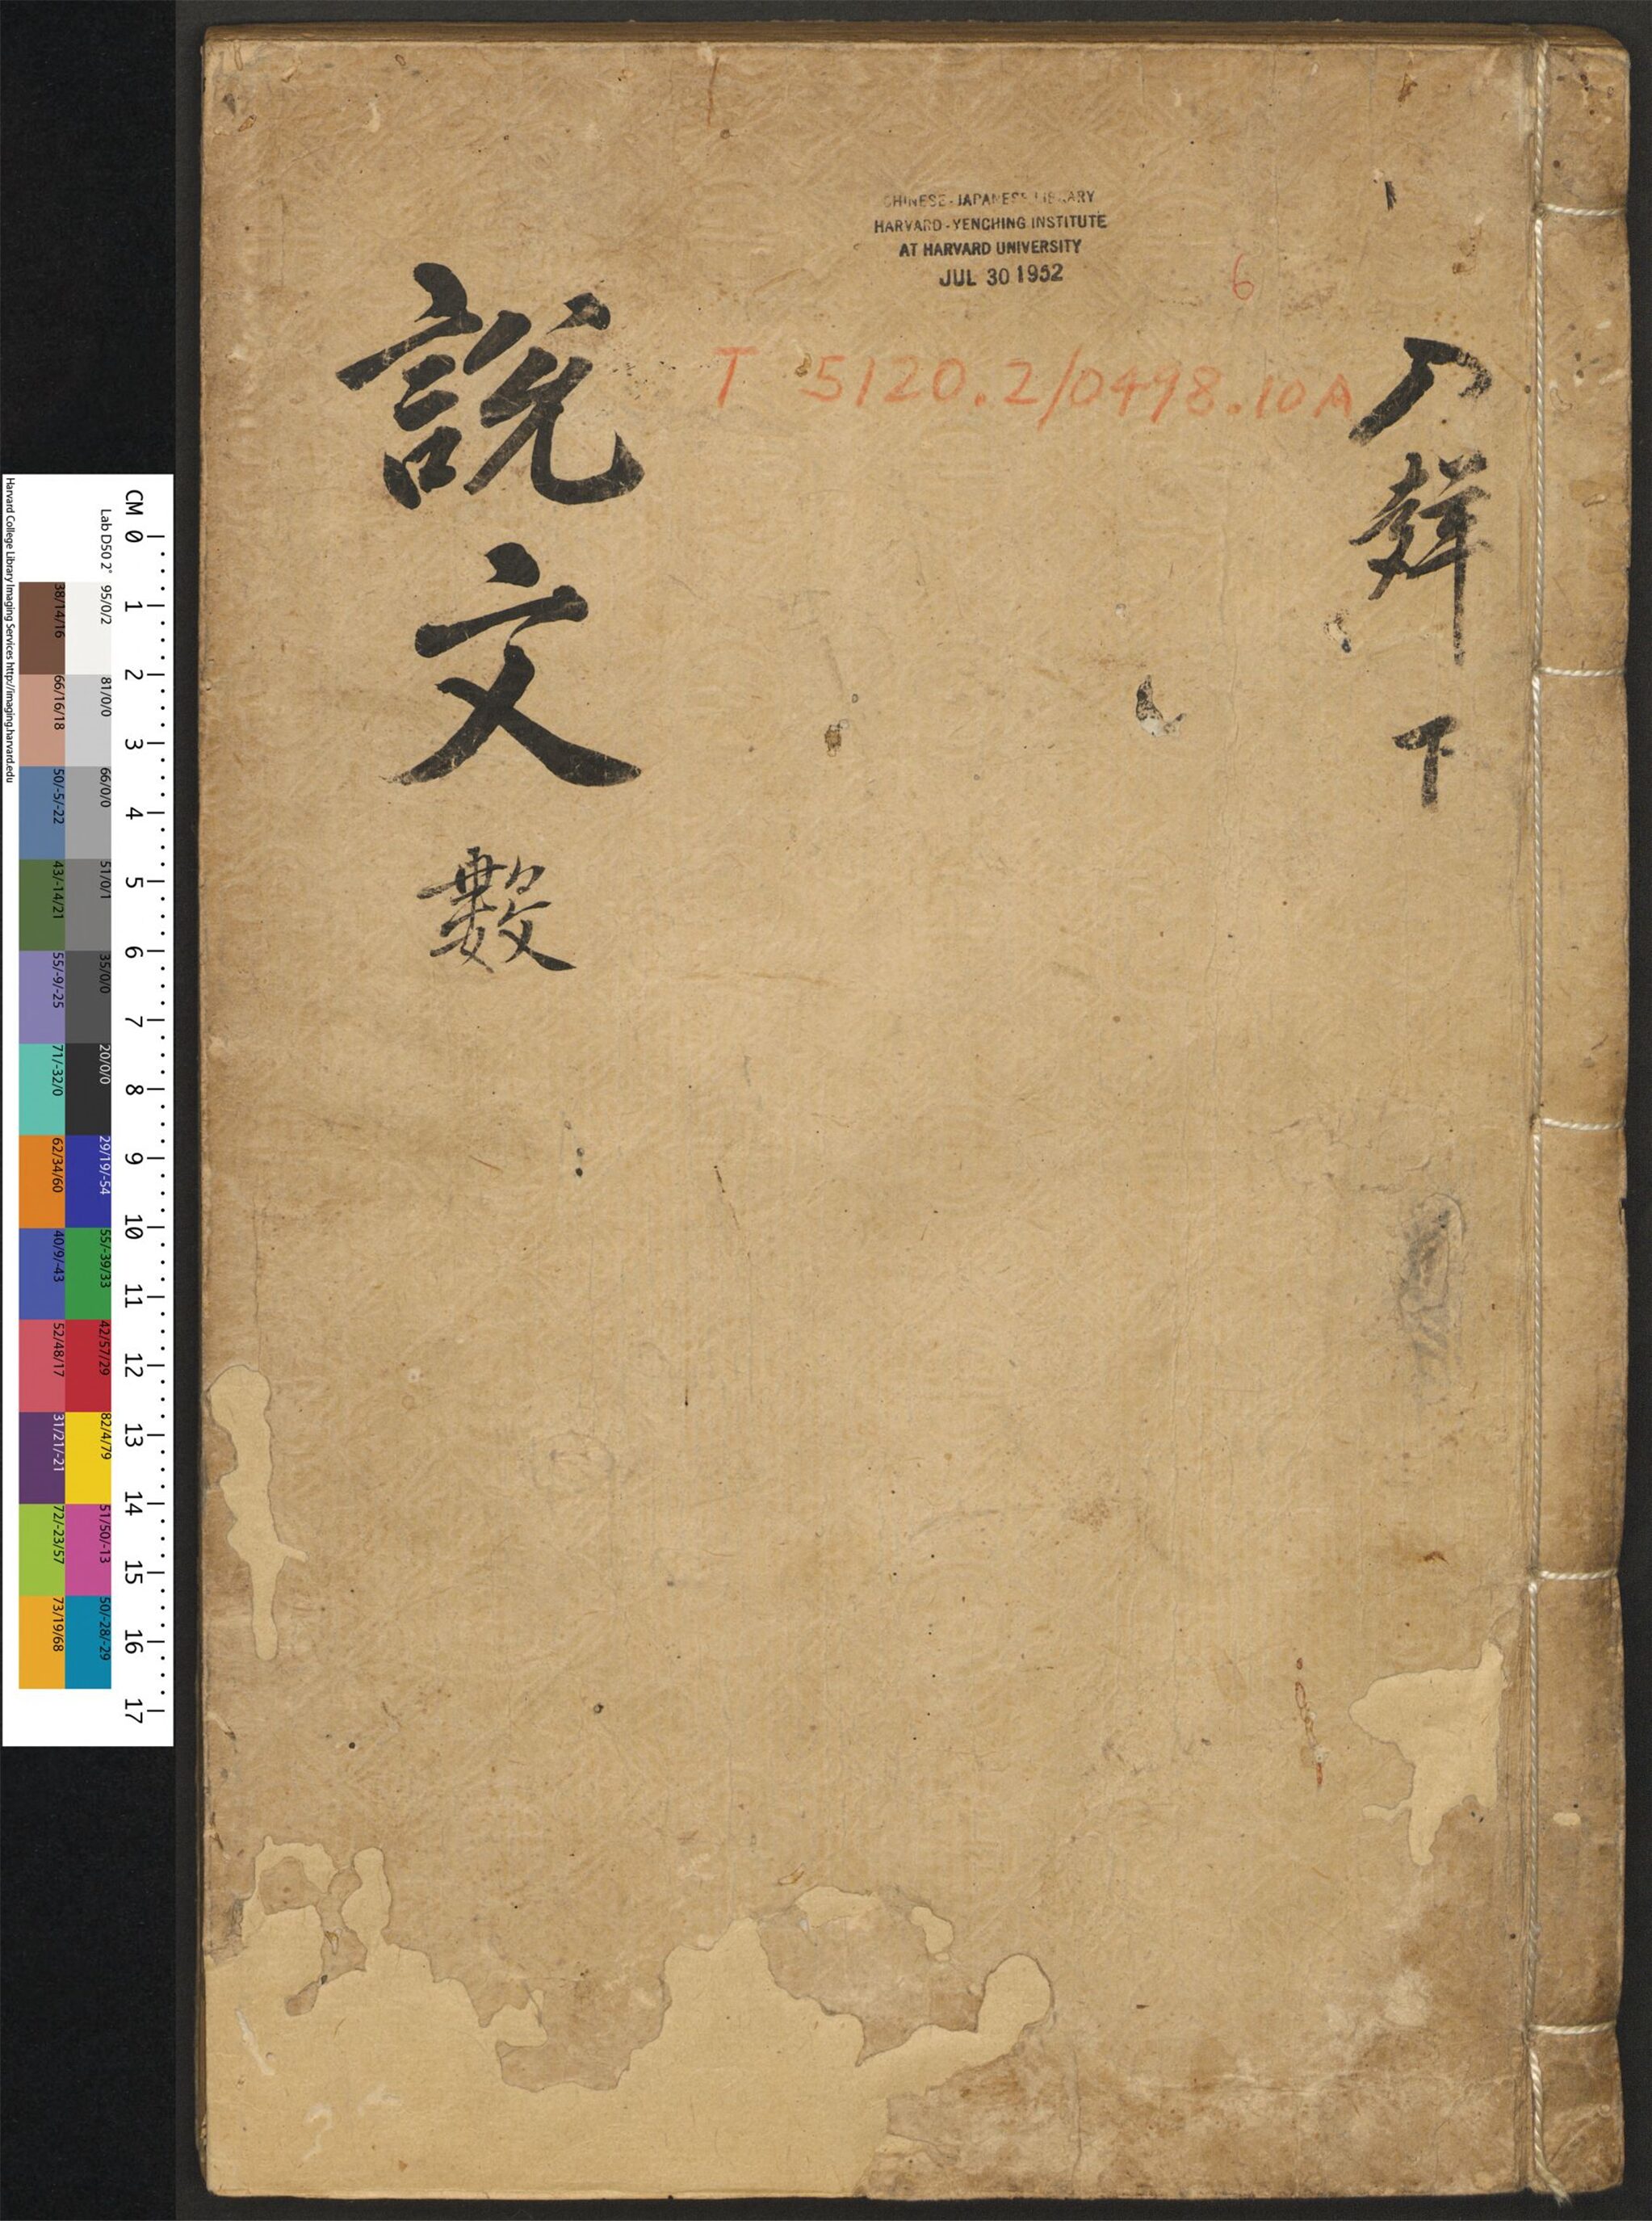 CHINESE-JAPANESE LIBRARY
HARVARD-YENCHING INSTITUTE
AT HARVARD UNIVERSITY
JUL 30 1952
6
T 5120.2/0498.10A
入聲 下
說文 數
CM 0 1 2 3 4 5 6 7 8 9 10 11 12 13 14 15 16 17
Lab D50 2° 95/0/2 81/0/0 66/0/0 51/0/1 35/0/0 20/0/0 29/19/-54 55/-39/33 42/57/29 82/4/79 51/50/-13 50/-28/-29
38/14/16 66/16/18 50/-5/-22 43/-14/21 55/-9/-25 71/-32/0 62/34/60 40/9/-43 52/48/17 31/21/-21 72/-23/57 73/19/68
Harvard College Library Imaging Services http://imaging.harvard.edu